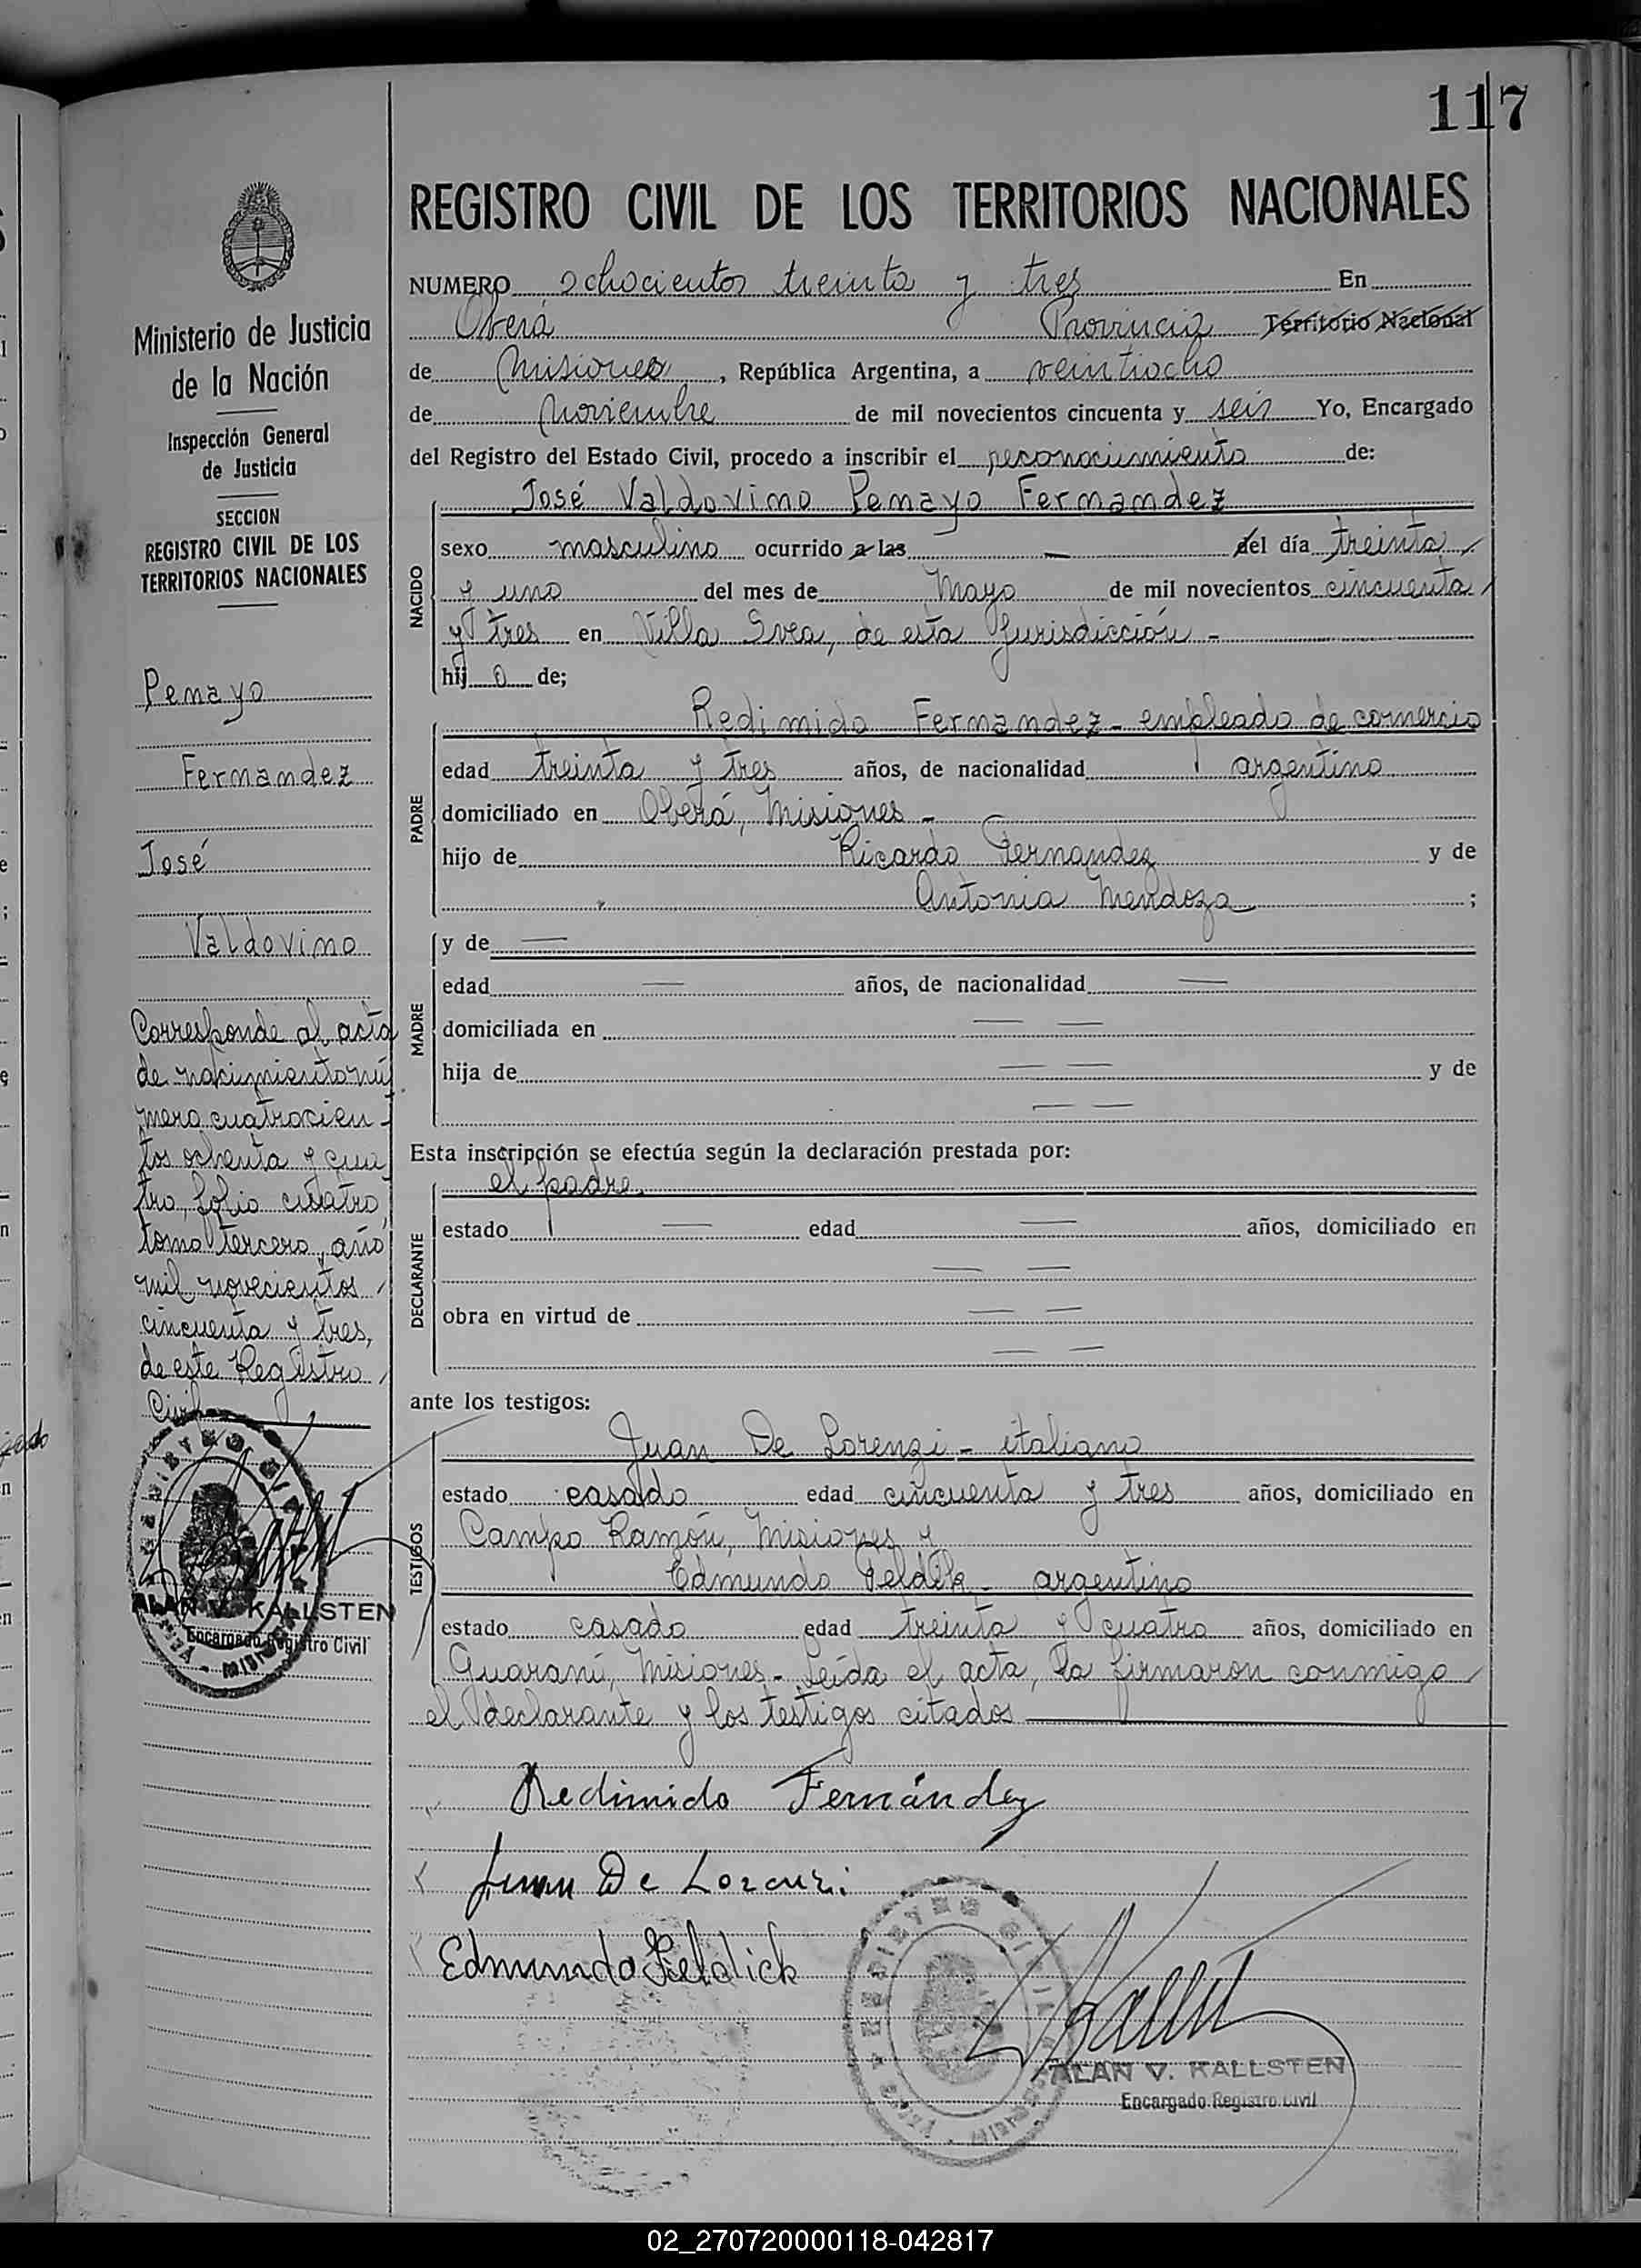 117
REGISTRO CIVIL DE LOS TERRITORIOS NACIONALES
NUMERO ochocientos treinta y tres En
Oberá Provincia Territorio Nacional
de Misiones, República Argentina, a veintiocho
de Noviembre de mil novecientos cincuenta y seis Yo, Encargado
del Registro del Estado Civil, procedo a inscribir el reconocimiento de:
NACIDO
José Valdovino Penayo Fernandez
sexo masculino ocurrido a las — del día treinta
y uno del mes de Mayo de mil novecientos cincuenta
y tres en Villa Svea, de esta Jurisdicción -
hij o de;
PADRE
Redimido Fernandez - empleado de comercio
edad treinta y tres años, de nacionalidad argentino
domiciliado en Oberá, Misiones -
hijo de Ricardo Fernandez y de
Antonia Mendoza ;
MADRE
y de —
edad — años, de nacionalidad —
domiciliada en — —
hija de — — y de
— —
Esta inscripción se efectúa según la declaración prestada por:
DECLARANTE
el padre.
estado — edad — años, domiciliado en
— —
obra en virtud de — —
— —
ante los testigos:
TESTIGOS
Juan De Lorenzi - italiano
estado casado edad cincuenta y tres años, domiciliado en
Campo Ramón, Misiones y
Edmundo Peldik - argentino
estado casado edad treinta y cuatro años, domiciliado en
Guaraní, Misiones - Leída el acta, la firmaron conmigo
el declarante y los testigos citados
Redimido Fernández
Juan De Lorenzi
Edmundo
ALAN V. KALLSTEN
Encargado Registro Civil
Ministerio de Justicia
de la Nación
Inspección General
de Justicia
SECCION
REGISTRO CIVIL DE LOS
TERRITORIOS NACIONALES
Penayo
Fernandez
José
Valdovino
Corresponde al acta
de nacimiento nú
mero cuatrocien-
tos ochenta y cua
tro, folio cuatro,
tomo tercero, año
mil novecientos
cincuenta y tres,
de este Registro
Civil
ALAN V. KALLSTEN
Encargado Registro Civil
02_270720000118-042817